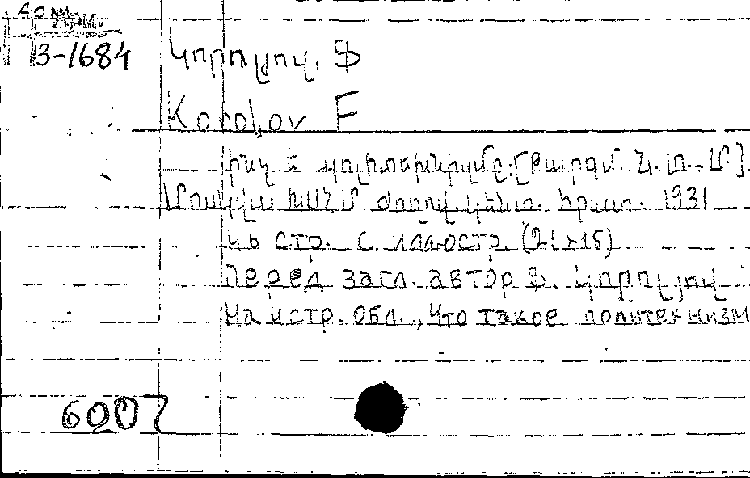 Арм.
3-1684
Կորոլյով. Ֆ
Korolov F
Ի՞նչ է պոլիտեխնիզմը. [Թարգմ. Ն. Տ.-Մ]
Մոսկվա ԽՍՀՄ Ժողով. կենտ. հրատ. 1931
46 стр. с иллюстр. (21x15)
Перед загл. автор Ֆ. Կորոլյով
На 4 стр. обл. „Что такое политехнизм
6007